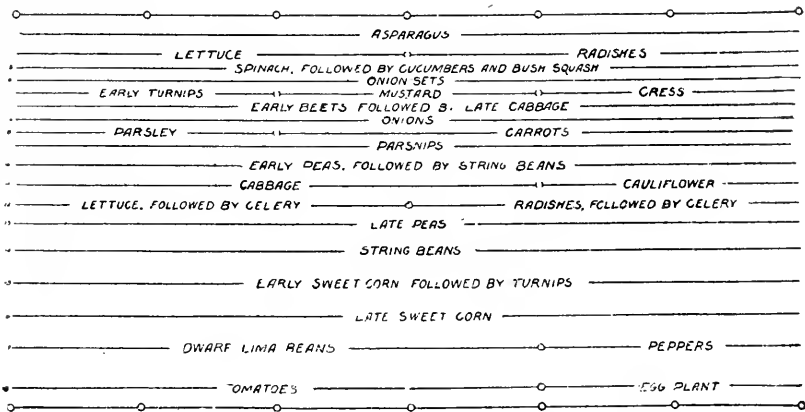 ASPARAGUS
LETTUCE RADISHES
SPINACH, FOLLOWED BY CUCUMBERS AND BUSH SQUASH
ONION SETS
EARLY TURNIPS MUSTARD CRESS
EARLY BEETS FOLLOWED B. LATE CABBAGE
ONIONS
PARSLEY CARROTS
PARSNIPS
EARLY PEAS, FOLLOWED BY STRING BEANS
CABBAGE CAULIFLOWER
LETTUCE, FOLLOWED BY CELERY RADISHES, FOLLOWED BY CELERY
LATE PEAS
STRING BEANS
EARLY SWEET CORN FOLLOWED BY TURNIPS
LATE SWEET CORN
DWARF LIMA BEANS PEPPERS
TOMATOES EGG PLANT